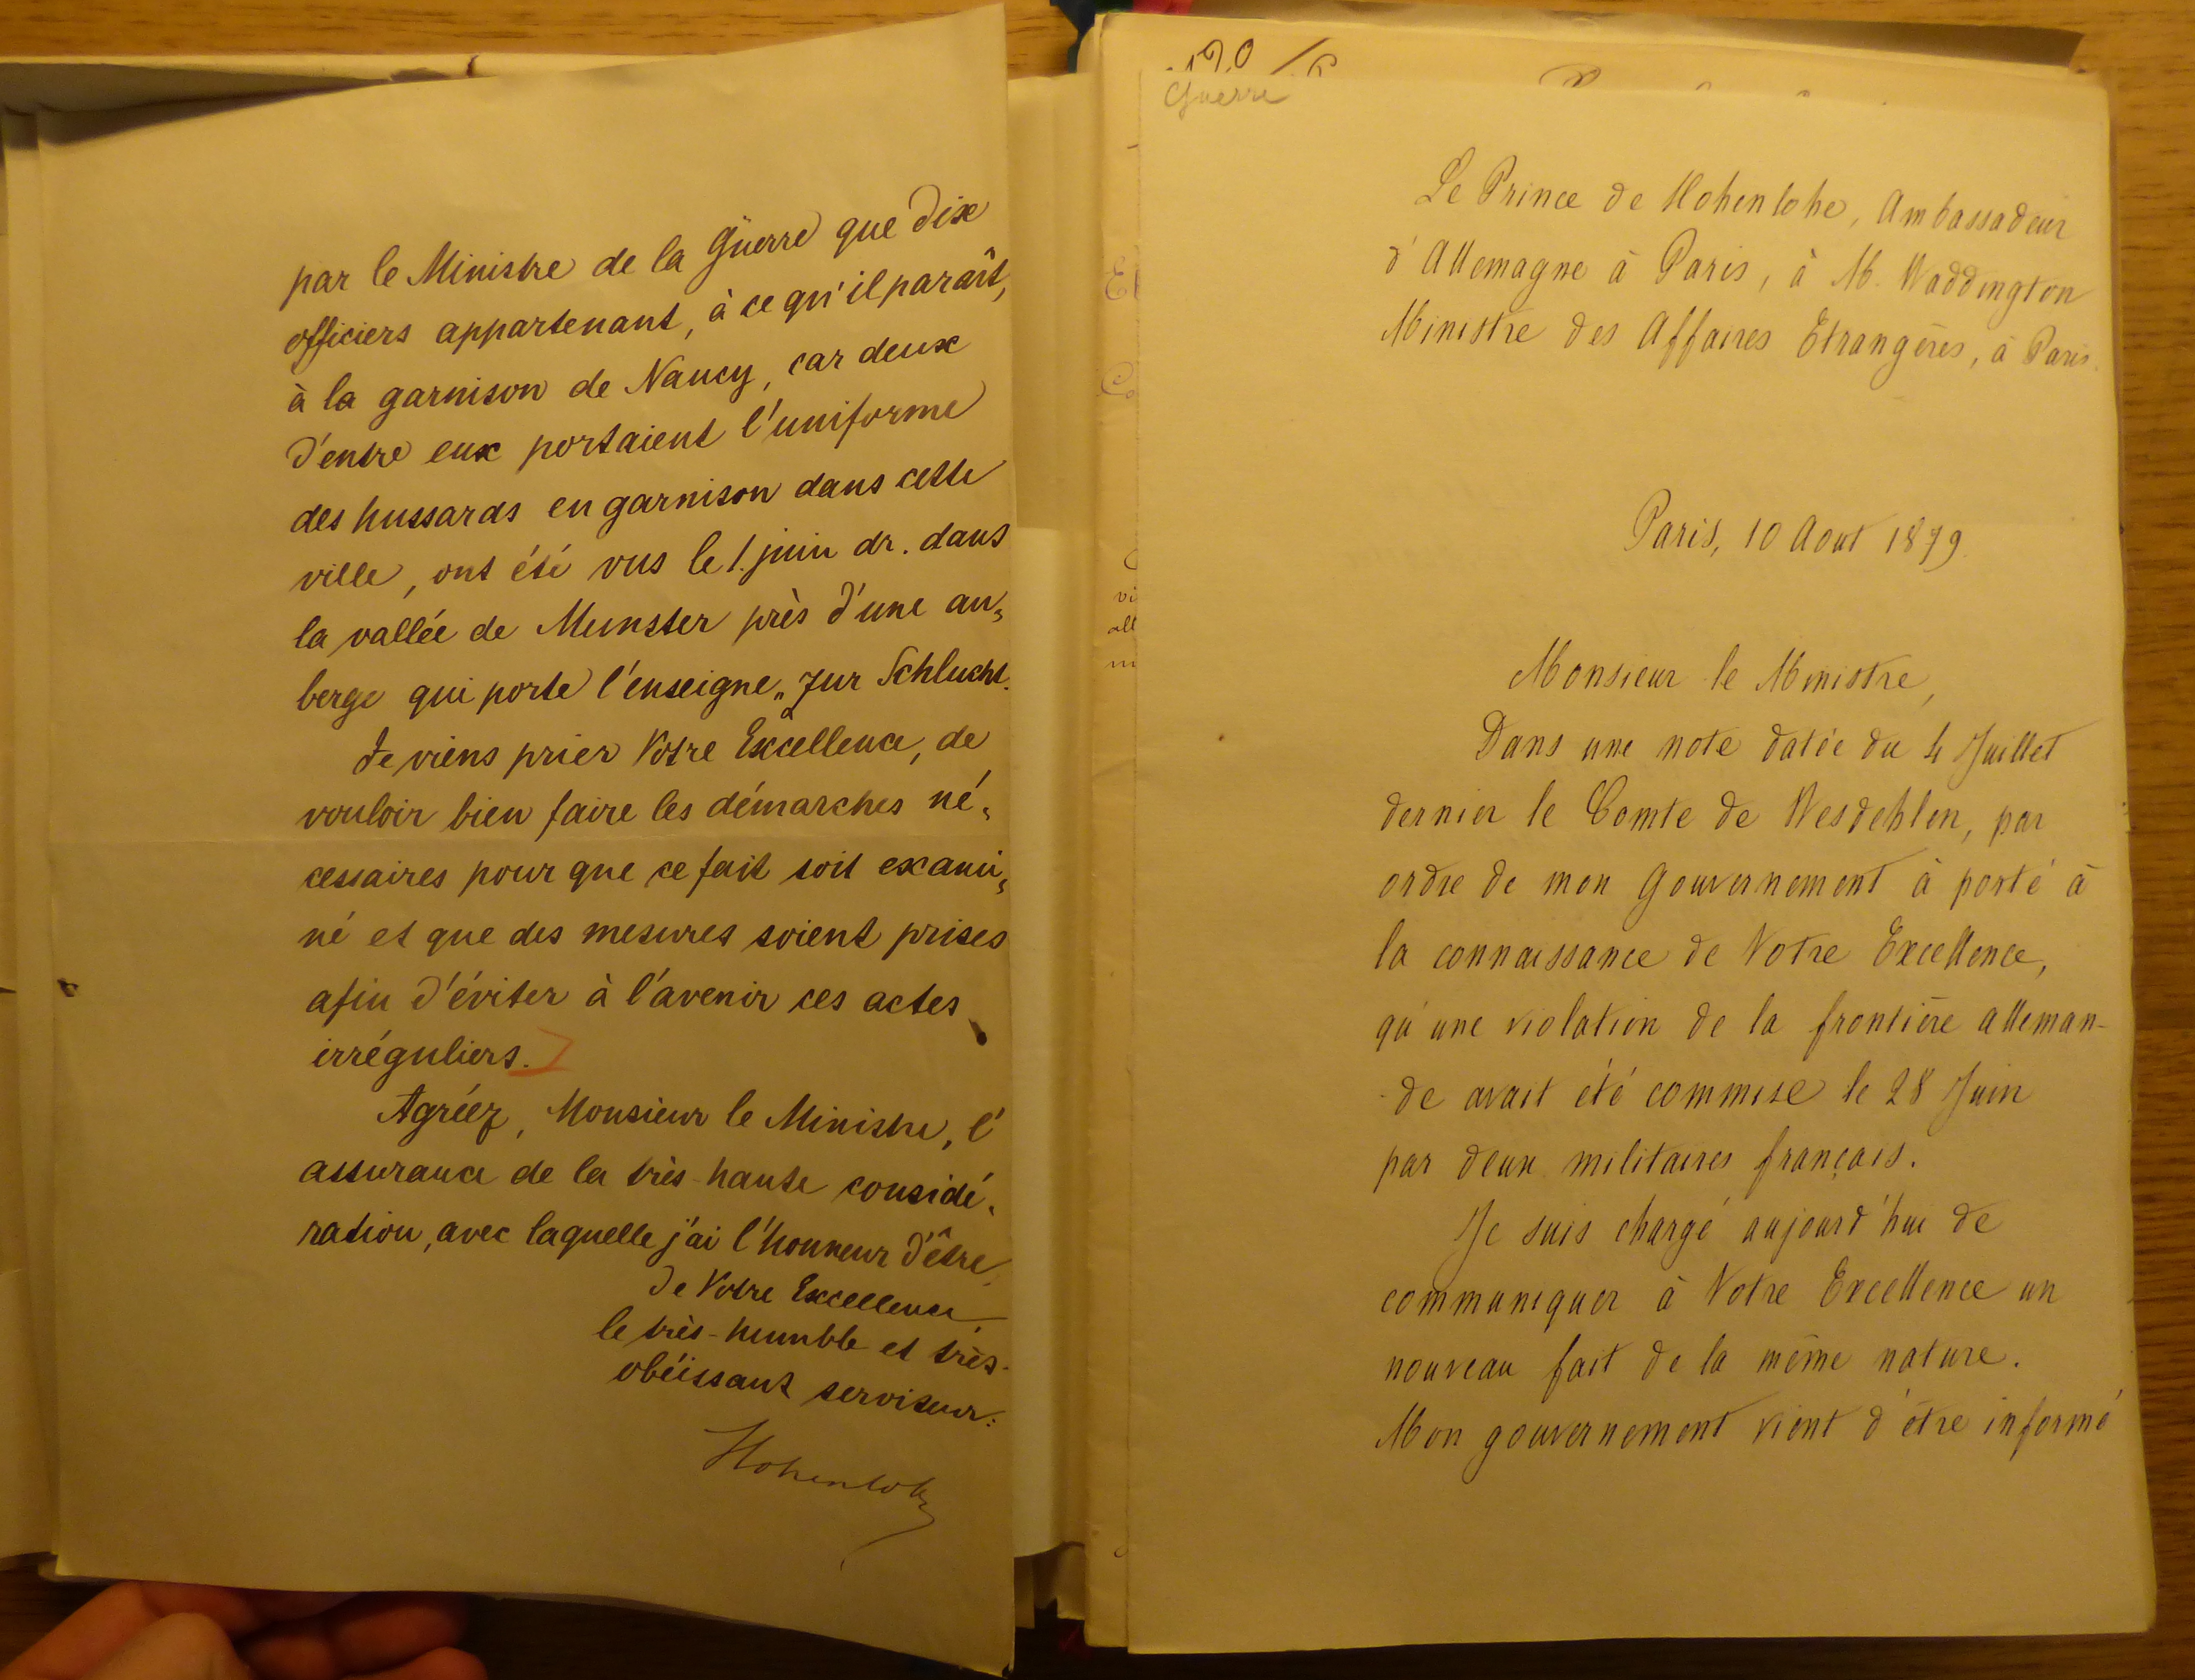 par le Ministre de la Guerre que dix
officiers appartenant, à ce qu'il paraît,
à la garnison de Nancy, car deux
d'entre eux portaient l'uniforme
des hussards en garnison dans cette
ville, ont été vus le 1. juin dr. dans
la vallée de Munster près d'une au=
berge qui porte l'enseigne „zur Schlucht.
Je viens prier Votre Excellence, de
vouloir bien faire les démarches né=
cessaires pour que ce fait soit exami=
né et que des mesures soient prises
afin d'éviter à l'avenir ces actes
irréguliers.
Agréez, Monsieur le Ministre, l'
assurance de la très-haute considé=
ration, avec laquelle j'ai l'honneur d'être,
de Votre Excellence,
le très-humble et très-
obéissant serviteur:
Hohenlohe
Guerre
Le Prince de Hohenlohe, Ambassadeur
d'Allemagne à Paris, à M. Waddington
Ministre des Affaires Etrangères, à Paris.
Paris, 10 Aout 1879.
Monsieur le Ministre,
Dans une note datée du 4 Juillet
dernier le Comte de Wesdehlen, par
ordre de mon Gouvernement à porté à
la connaissance de Votre Excellence,
qu'une violation de la frontière alleman-
-de avait été commise le 28 Juin
par deux militaires français.
Je suis chargé aujourd'hui de
communiquer à Votre Excellence un
nouveau fait de la même nature.
Mon gouvernement vient d'être informé